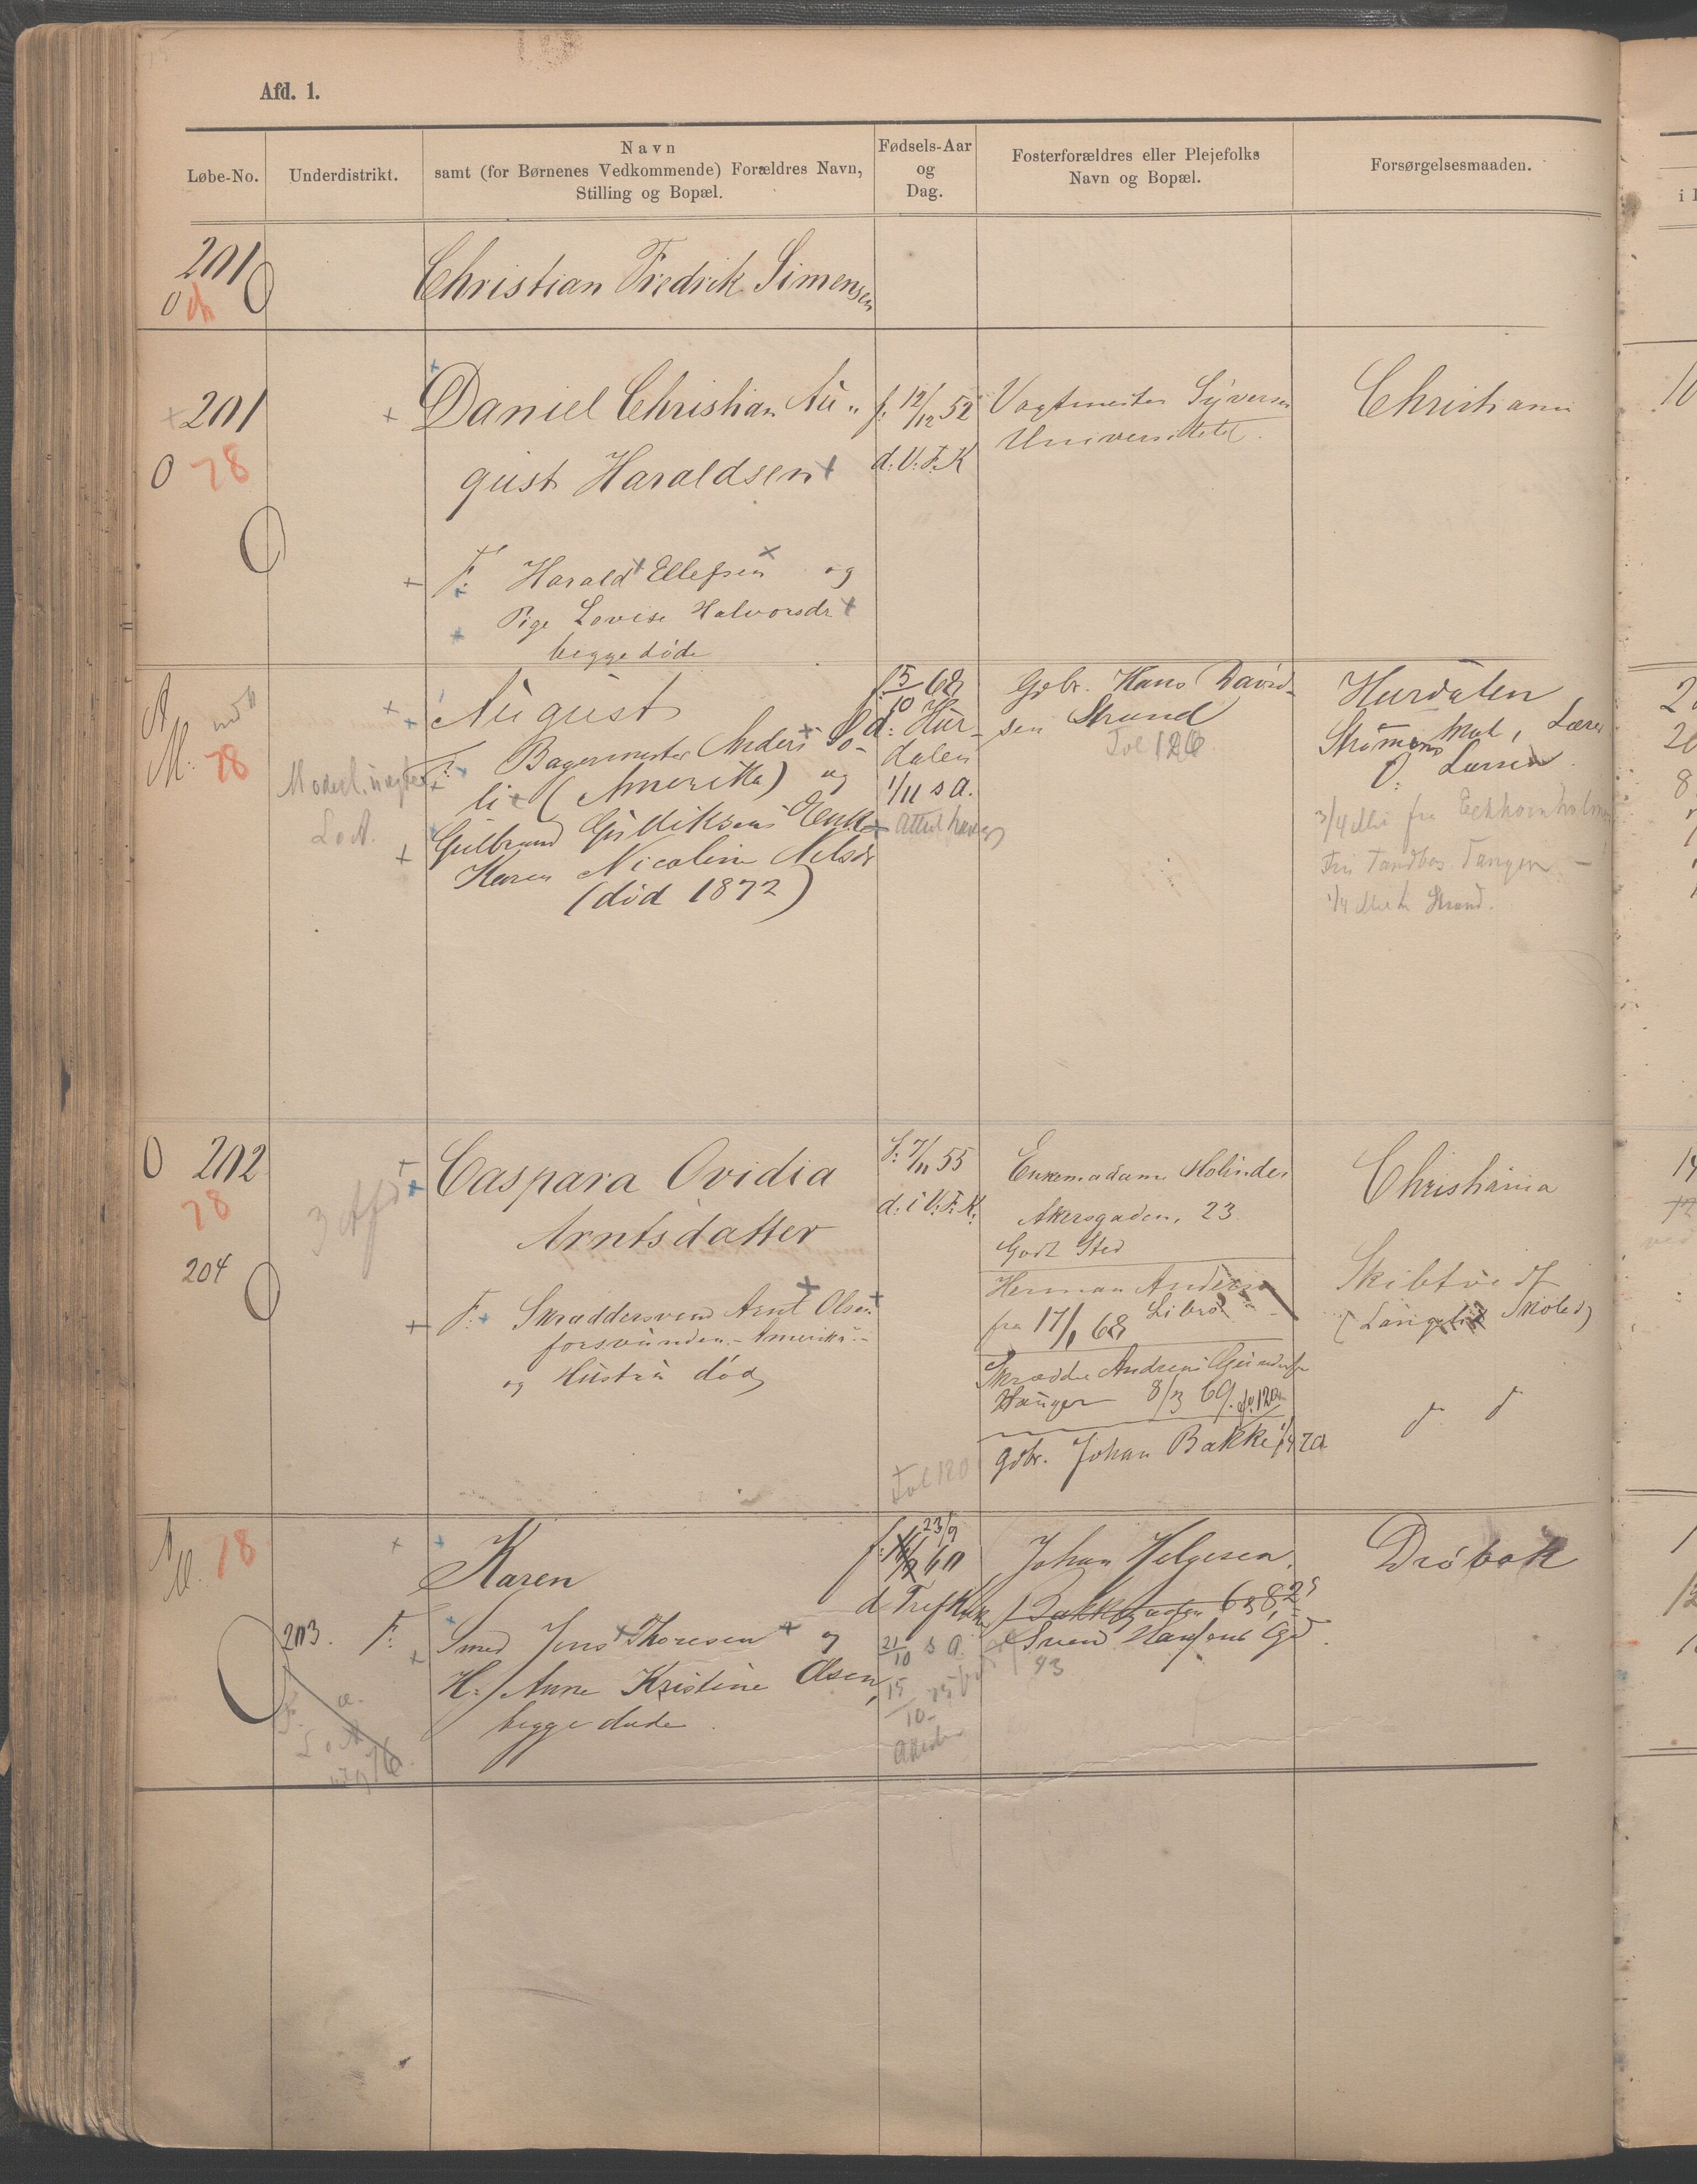 Afd. 1.
Løbe-No.
Underdistrikt.
Navn
samt (for Børnenes Vedkommende) Forældres Navn,
Stilling og Bopæl.
Fødsels-Aar
og
Dag.
Fosterforældres eller Plejefolks
Navn og Bopæl.
Forsørgelsesmaaden.
201
Christian Fredrik Simensen
201
0 78
Daniel Christian Au„
gust Haraldsen
F: Harald Ellefsen og
Pige Lovise Halvorsdr
begge døde
f: 12/12 52
d: V: F: K
Vagtmester Syversen
Universitetet.
Christiania
M: 78
August
F: Bagermester Anders So-
li (Amerika) og
Gulbrand Gulliksens Enke
Karen Nicoline Nilsdr
(død 1872)
f: 5/10 68
d: Hur-
dalen
1/11 s A.
Attest haves
Gbr. Hans David-
sen Strand
Fol 126.
Hurdalen
O: Larsen
3/4 Mil fra Eckhornholmen
1/4 Mil fr Strand.
0 202
78
204
3 Afd
Caspara Ovidia
Arntsdatter
F: Skræddersvend Arnt Olsen
forsvunden - Amerika -
og Hustru død
f: 7/11 55
d: i V: F: K:
Fol 120
Enkemadame Molinder
Akersgaden, 23.
Godt Sted
Herman Andersen
fra 17/1 68
Skrædder Andreas
Hauger 8/3 69. fol 120
Gbr. Johan Bakke
Christiania
Skibtvedt
M. 78
203.
Karen
F: Smed Jens Thoresen og
H: Anne Kristine Olsen,
begge døde.
23/9
60
21/10 s A.
15/10
Johan Helgesen,
Svend
93
Drøbak